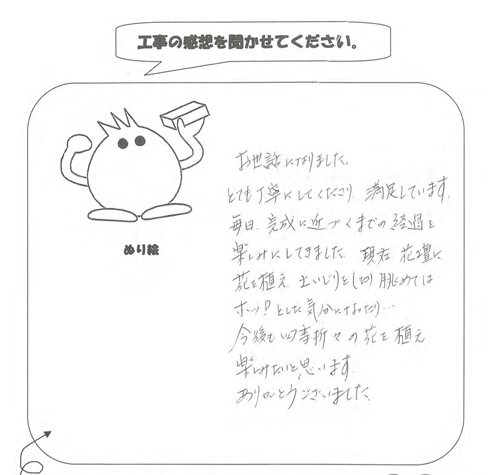 工事の感想を聞かせてください。
お世話になりました。
とても丁寧にしてくださり、満足しています。
毎日、完成に近づくまでの経過を
楽しみにしてきました。現在、花壇に
花を植え、土いじりをしたり眺めては
ホッ!とした気分になったり…
今後も四季折々の花を植え
楽しみたいと思います。
ありがとうございました。
ぬり絵